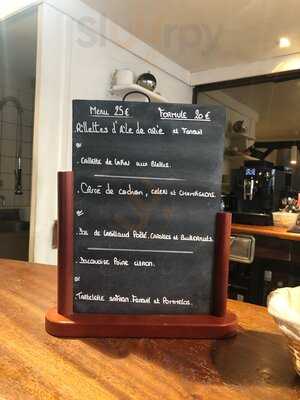 Menu 25€ Formule 20€
.Rillettes d'Aile de raie et Fenouil
ou
.Caillette de Lapin aux Blettes.
.Cèvre de cochon, celeri et champignons.
ou
.Dos de Cabillaud Poêlé. Carottes et Butternuts.
.Dacquoise Poire citron.
ou
.Tartelette safran. Fenouil et Pomelos.